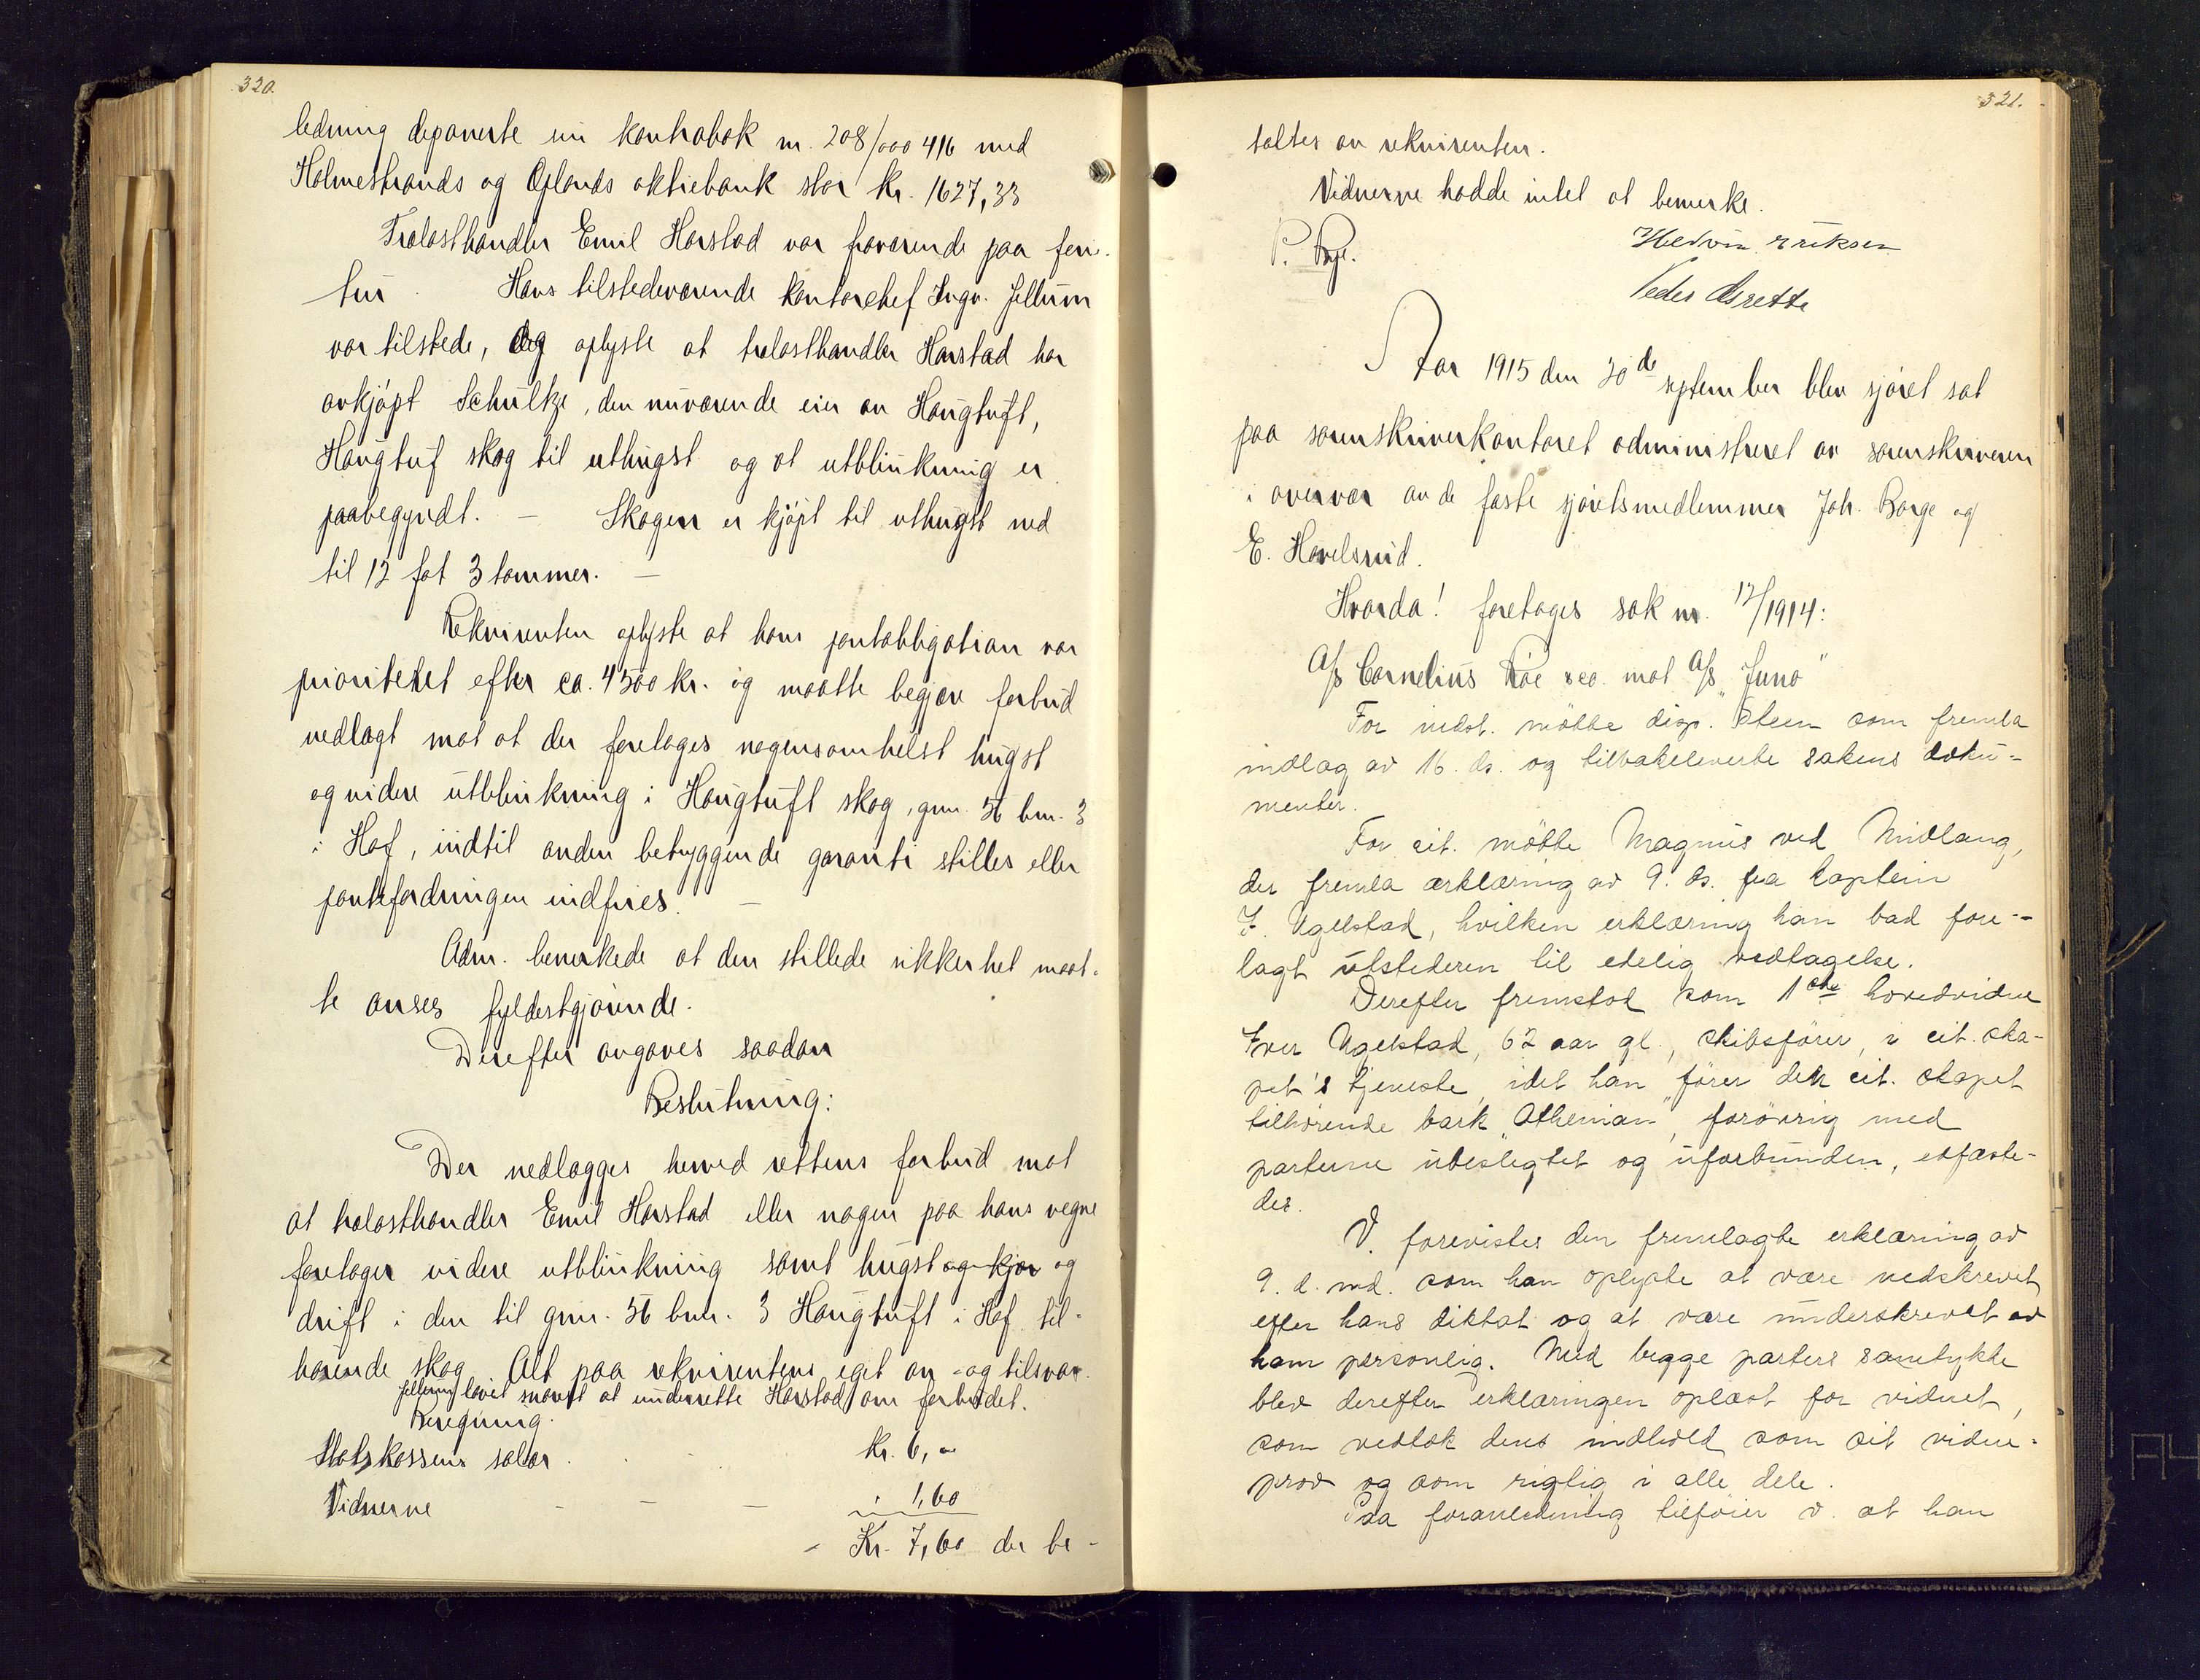 320.
ledning deponerte en kontrabok nr. 208/000 416 med
Holmestrands og Oplands aktiebank stor kr. 1627,33
Trælasthandler Emil Harstad var fraværende paa ferie-
tur. Hans tilstedeværende kontorchef Ingv. Jellum
var tilstede, og oplyste at trælasthandler Harstad har
avkjøpt Schultze, den nuværende eier av Haugtuft,
Haugtuf skog til uthugst og at utblinkning er
paabegyndt. — Skogen er kjøpt til uthugst ned
til 12 fot 3 tommer. —
Rekvirenten oplyste at hans pantobligation var
prioritetet efter ca. 4500 kr. og maatte begjære forbud
nedlagt mot at der foretages nogensomhelst hugst
og videre utblinkning i Haugtuft skog, gnr. 56 bnr. 3
i Hof, indtil anden betryggende garanti stilles eller
pantefordringen indfries. —
Adm. bemerkede at den stillede sikkerhet maat-
te anses fyldestgjørende.
Derefter avgaves saadan
Beslutning:
Der nedlægges herved rettens forbud mot
at trælasthandler Emil Harstad eller nogen paa hans vegne
foretager videre utblinkning samt hugst og kjør og
drift i den til gnr. 56 bnr. 3 Haugtuft i Hof til-
hørende skog. Alt paa rekvirentens eget an- og tilsvar.
Jellum lovet snarest at underrette Harstad om forbudet.
Beregning:
Statskassens salær . . . kr. 6,-
Vidnerne - - - " 1,60
- Kr. 7,60 der be-
321.
taltes av rekvirenten.
Vidnerne hadde intet at bemerke.
P. Hedvin Eriksen
Peder Aasrette
Aar 1915 den 20de september blev sjøret sat
paa sorenskriverkontoret administreret av sorenskriveren
i overvær av de faste sjøretsmedlemmer Joh. Borge og
E. Havelsrud.
Hvorda! foretages sak nr. 12/1914:
A/s Cornelius Røe & co. mot A/s "Juno"
For indst. mötte disp. Steen som fremla
indlæg av 16. ds. og tilbakeleverte sakens doku-
menter.
For cit. mötte Magnus ved Midlang,
der fremla erklæring av 9. ds. fra kaptein
I. Ugelstad, hvilken erklæring han bad fore-
lagt utstederen til edelig vedtagelse.
Derefter fremstod som 1ste hovedvidne
Iver Ugelstad, 62 aar gl., skibsförer, i cit. ska-
pet's tjeneste, idet han förer det cit. skapet
tilhörende bark "Athenian", forövrig med
parterne ubeslegtet og uforbunden, edfæste-
des.
V. forevistes den fremlagte erklæring av
9. d. md. som han oplyste at være nedskrevet
efter hans diktat og at være underskrevet av
ham personlig. Med begge parters samtykke
blev derefter erklæringen oplæst for vidnet,
som vedtok dens indhold som sit vidne-
prov og som rigtig i alle dele.
Paa foranledning tilföier v. at han